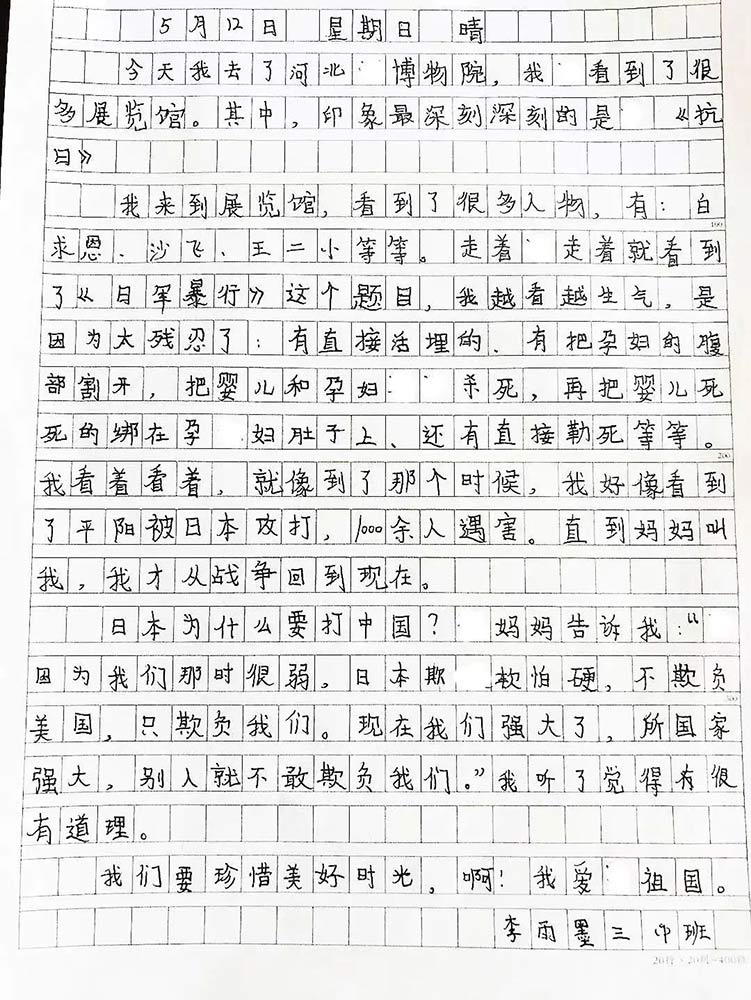 5月12日 星期日 晴
今天我去了河北博物院，我看到了很
多展览馆。其中，印象最深刻深刻的是《抗
日》
我来到展览馆，看到了很多人物，有：白
100
求恩、沙飞、王二小等等。走着走着就看到
了《日军暴行》这个题目，我越看越生气，是
因为太残忍了：有直接活埋的、有把孕妇的腹
部割开，把婴儿和孕妇杀死，再把婴儿死
死的绑在孕妇肚子上、还有直接勒死等等。
200
我看着看着，就像到了那个时候，我好像看到
了平阳被日本攻打，1000余人遇害。直到妈妈叫
我，我才从战争回到现在。
日本为什么要打中国？妈妈告诉我：“
因为我们那时很弱，日本欺软怕硬，不欺负
300
美国，只欺负我们。现在我们强大了，所国家
强大，别人就不敢欺负我们。”我听了觉得有很
有道理。
我们要珍惜美好时光，啊！我爱祖国。
李雨墨三 班
20行×20列=400格